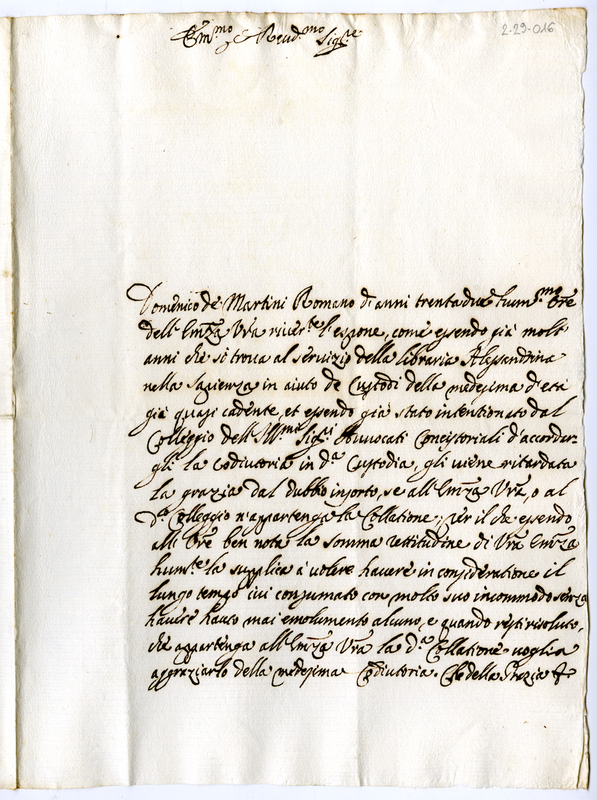 2-29-016
Em.mo e Reud.mo Sig.re
Domenico de Martini Romano di anni trentadue hum.mo Ore
dell' Emza Vra riuer.te l'espone, come essendo già molti
anni che si troua al seruizio della libraria Alessandrina
nella Sapienza in aiuto de Custodi della medesima d'età
già quasi cadente, et essendo già stato intentionato dal
Colleggio dell' Ill.mi Sig.ri Auuocati Concistoriali d'accordar-
gli la Codiutoria in d.a Custodia, gli uiene ritardata
la grazia dal dubbio insorto, se all' Emza Vra, o al
d.o Colleggio n'appartenga la Collatione; Per il che essendo
all' Ore ben nota la somma rettitudine di Vra Emza
hum.te la supplica à uolere hauere in consideratione il
lungo tempo iui consumato con molto suo incommodo senza
hauere hauto mai emolumento alcuno, e quando resti risoluto,
che appartenga all' Emza Vra la d.a Collatione uoglia
aggraziarlo della medesima Codiutoria. Che della Grazia &